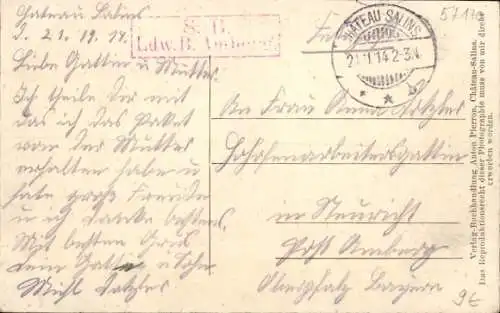 Chateau Salins
d. 21.11.14.
Liebe Gattin u Mutter.
Ich theile Dir mit
das ich das Paket
von der Mutter
erhalten habe u
habe große Freude
u ich danke bestens.
Mit besten Grus
dein Gatte u Sohn
Michl
S. B.
Ldw. B.
CHÂTEAU-SALINS
21.11.14 2-3N
57170
An Frau Anna
Hohofenarbeitersgattin
in Neuricht
Post Amberg
Oberpfalz Bayern
9€
Verlag-Buchhandlung Anton Pierron, Château-Salins.
Das Reproduktionsrecht dieser Photographie muss von mir direkt
erworben werden.